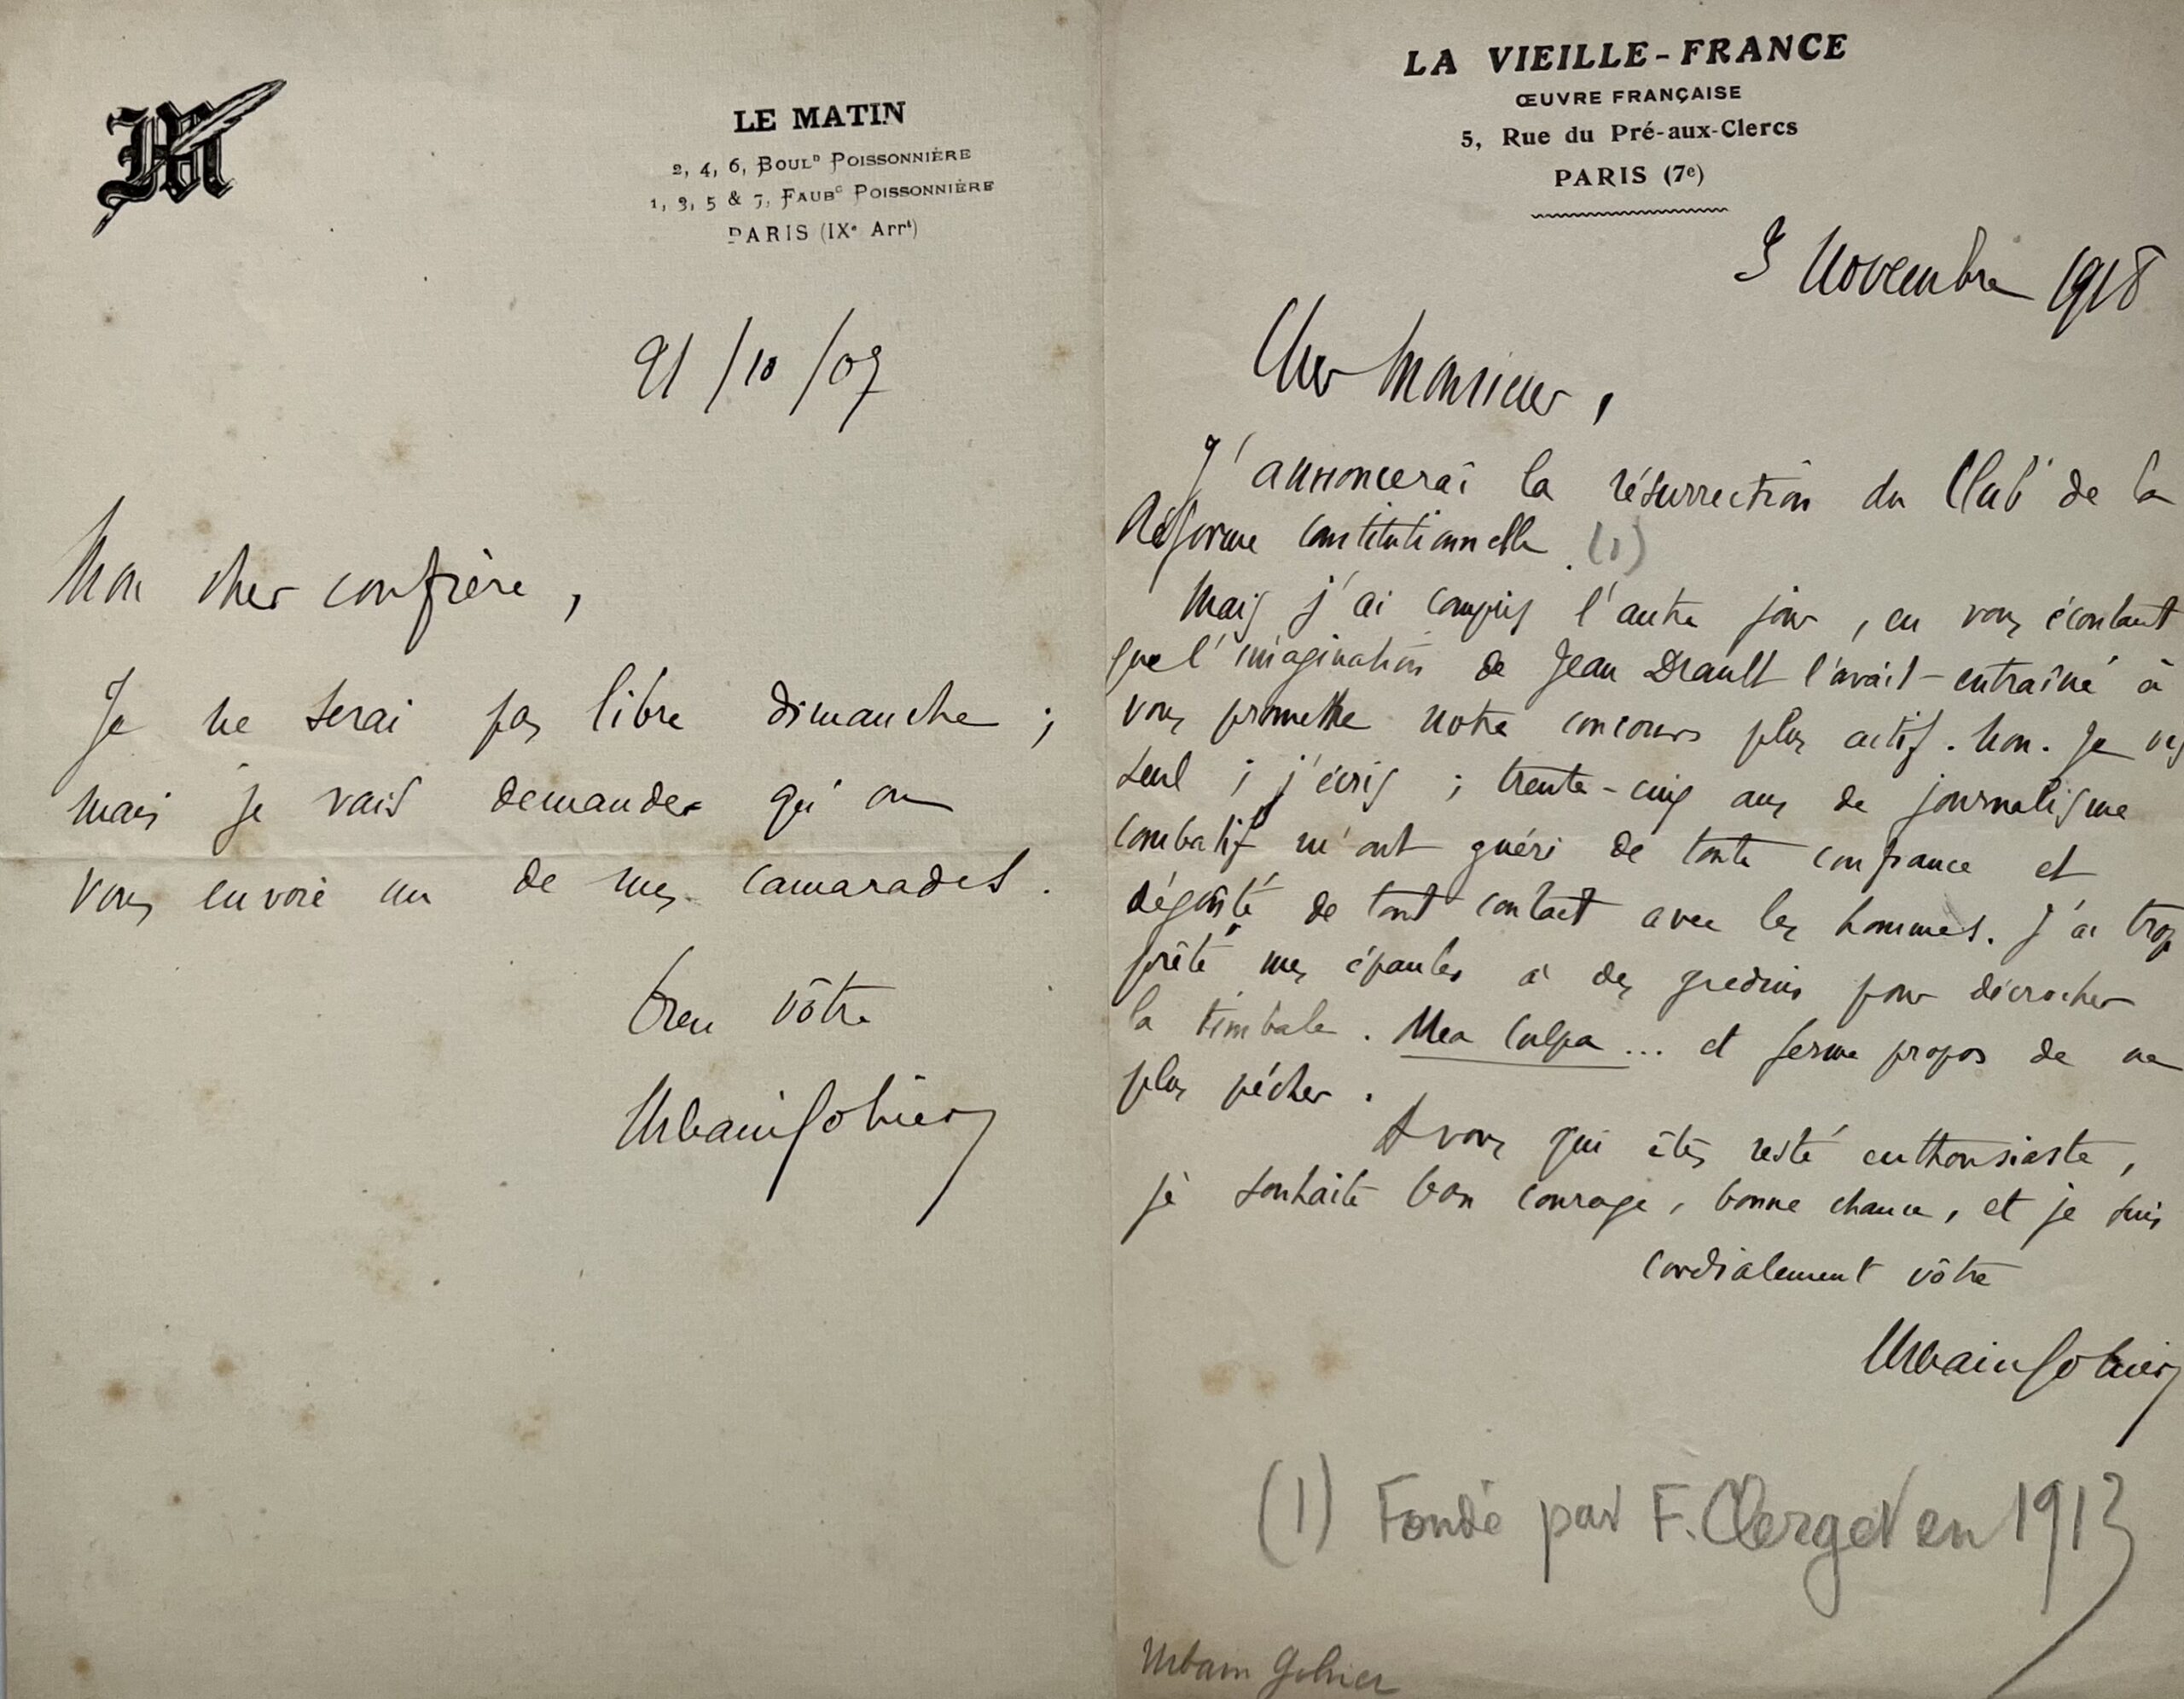 M
LE MATIN
2, 4, 6, BOULD POISSONNIÈRE
1, 3, 5 & 7, FAUBG POISSONNIÈRE
PARIS (IXe Arrt)
21/10/07
Mon cher confrère,
Je ne serai pas libre dimanche ;
mais je vais demander qu'on
vous envoie un de mes camarades.
bien vôtre
Urbain Gohier
LA VIEILLE-FRANCE
ŒUVRE FRANÇAISE
5, Rue du Pré-aux-Clercs
PARIS (7e)
3 Novembre 1918
Cher Monsieur,
J'annoncerai la résurrection du Club de la
Réforme Constitutionnelle. (1)
Mais j'ai compris l'autre jour, en vous écoutant
que l'imagination de Jean Drault l'avait entraîné à
vous promettre notre concours plus actif. Non. Je vis
seul ; j'écris ; trente-cinq ans de journalisme
combatif m'ont guéri de toute confiance et
dégoûté de tout contact avec les hommes. J'ai trop
prêté mes épaules à des gredins pour décrocher
la timbale. Mea Culpa... et ferme propos de ne
plus pécher.
A vous qui êtes resté enthousiaste,
je souhaite bon courage, bonne chance, et je suis
cordialement vôtre
Urbain Gohier
(1) Fondé par F. Clerget en 1913
Urbain Gohier